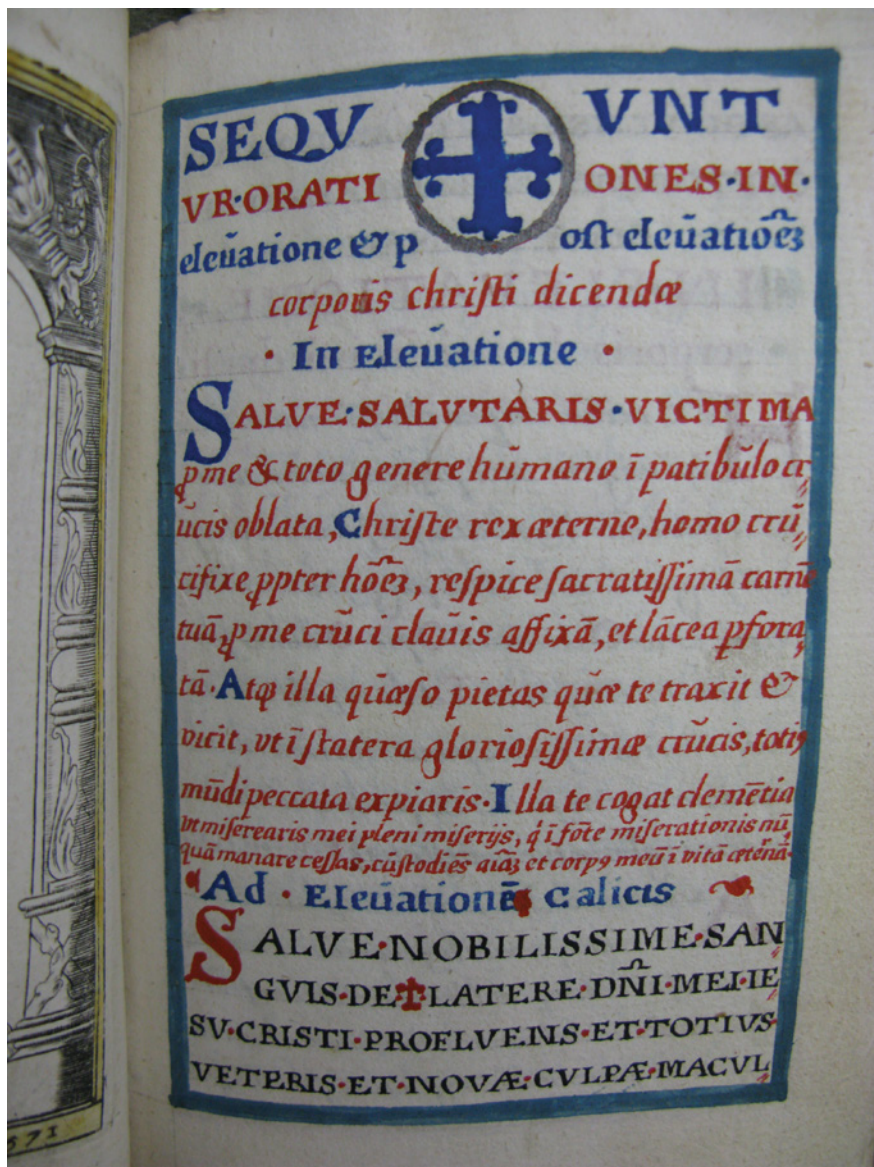 SEQV VNT
VR·ORATI ONES·IN·
eleũatione & p ost eleũatiõeʒ
corporis christi dicendæ
· In Eleũatione ·
SALVE·SALVTARIS·VICTIMA
ꝓ me & toto genere hũmano ĩ patibũlo cr
ũcis oblata, Christe rex æterne, homo crũ
cifixe ꝓpter hõeʒ, respice sacratissimã carnẽ
tuã, ꝓ me crũci claũis affixã, et lãcea ꝑfora
tã. Atꝙ illa qũæso pietas qũæ te traxit &
vicit, vt ĩ statera gloriosissimæ crũcis, totiꝰ
mũdi peccata expiaris. Illa te cogat clemẽtia
vt miserearis mei pleni miserijs, q́ ĩ fõte miserationis nũ
quã manare cessas, cũstodiẽs aĩaʒ et corpꝰ meũ ĩ vitã æternã.
Ad · Eleũationẽ calicis
SALVE·NOBILISSIME·SAN
GVIS·DE·LATERE·DÑI·MEI·IE
SV·CRISTI·PROFLVENS·ET·TOTIVS·
VETERIS·ET·NOVÆ·CVLPÆ·MACVL
571